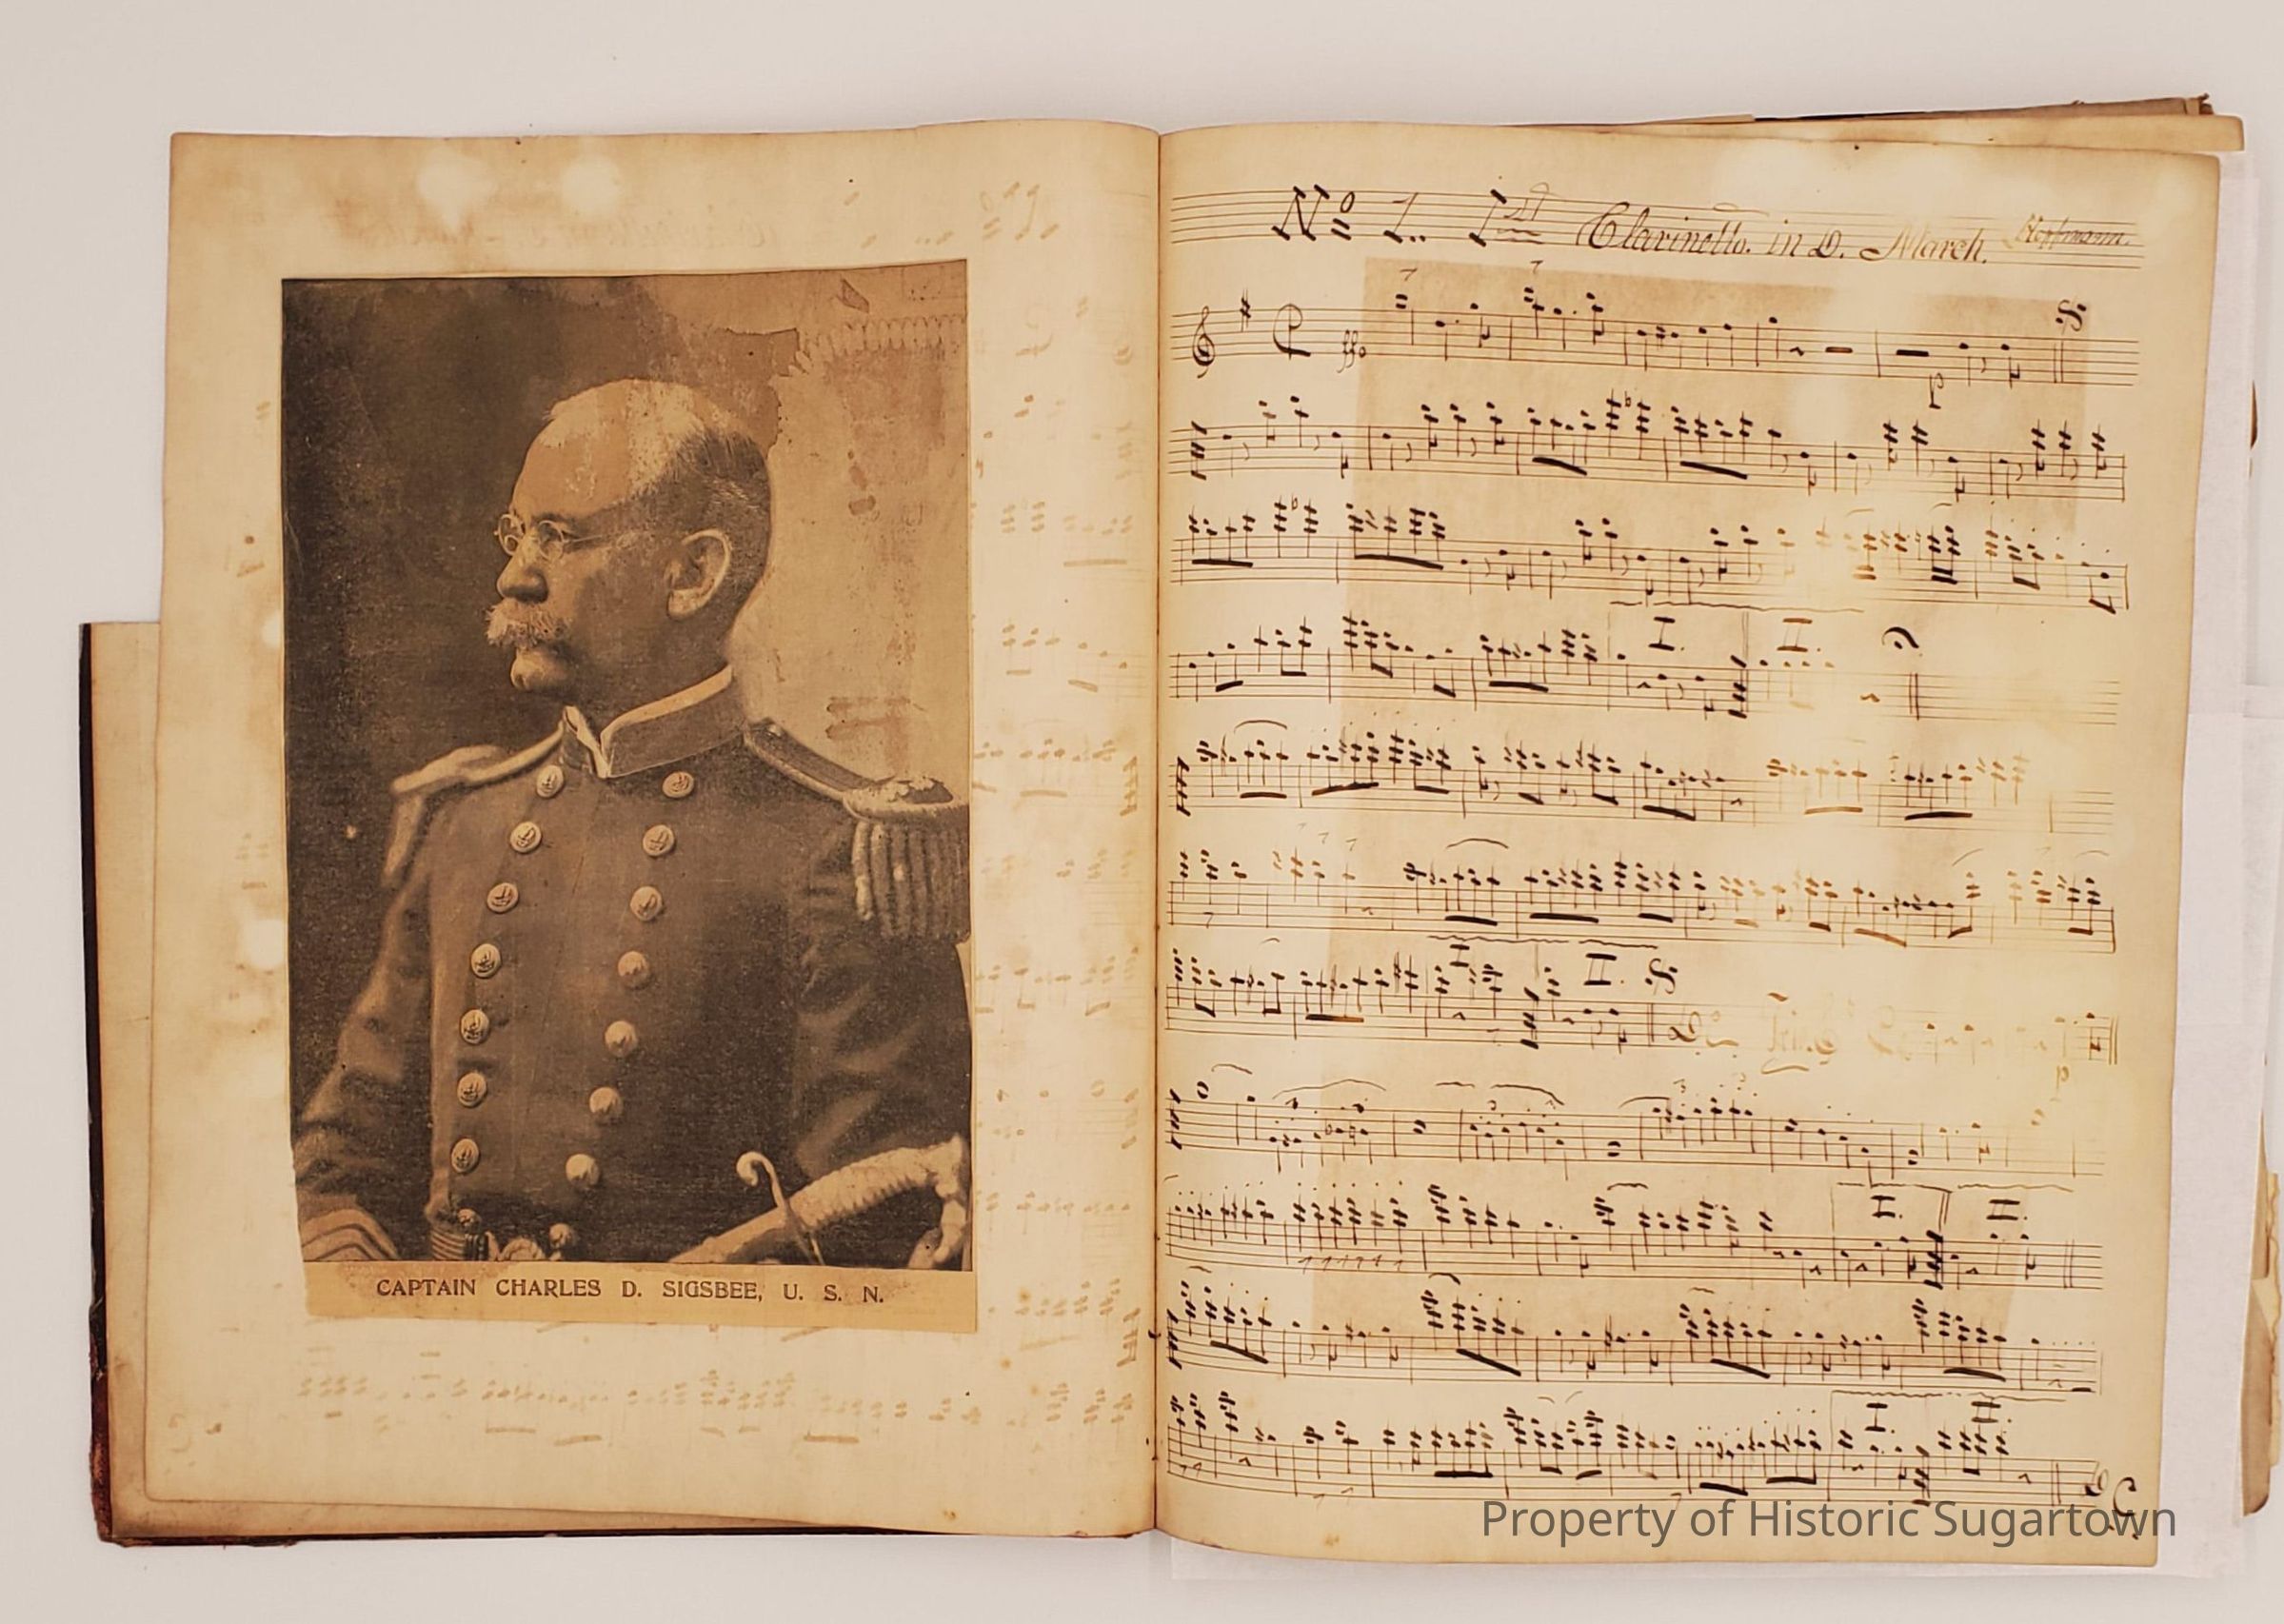 CAPTAIN CHARLES D. SIGSBEE, U. S. N.
No 1.. 1st Clarinetto. in D. March. Hoffmann.
ffo
Property of Historic Sugartown